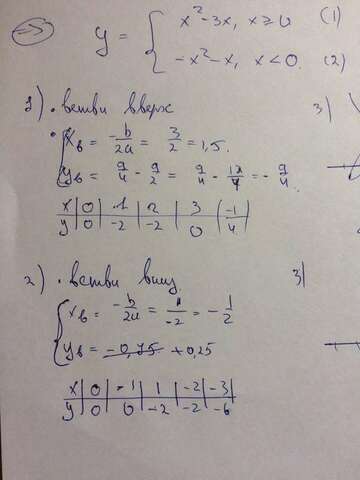 => y = { x²-3x, x≥0 (1)
-x²-x, x<0. (2)
1) • ветви вверх 3)
• { xв = -b/2a = 3/2 = 1,5.
yв = 9/4 - 9/2 = 9/4 - 18/4 = -9/4.
x | 0 | 1 | 2 | 3 | (-1
y | 0 | -2 | -2 | 0 | 4)
2) • ветви вниз 3)
{ xв = -b/2a = 1/-2 = -1/2
yв = -0,75 +0,25
x | 0 | -1 | 1 | -2 | -3
y | 0 | 0 | -2 | -2 | -6